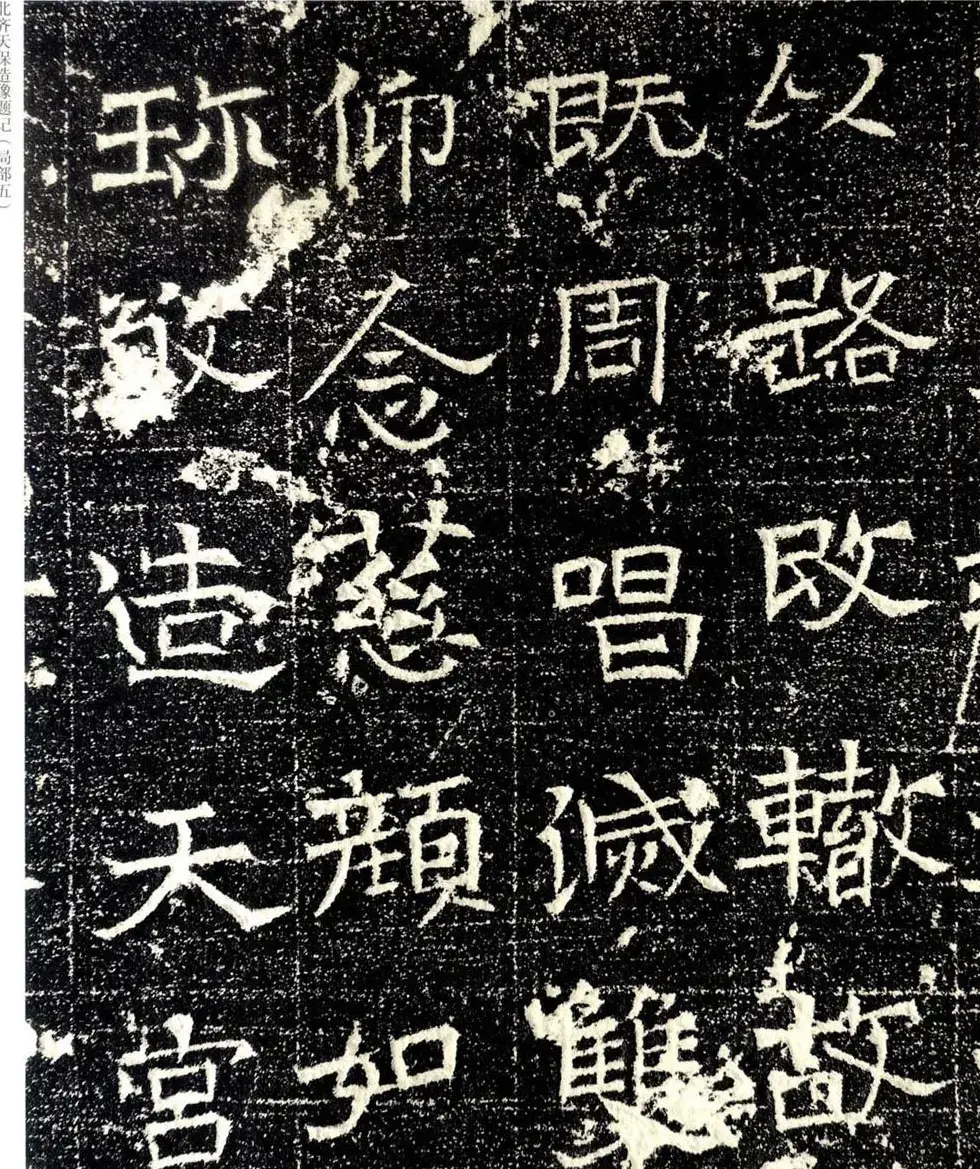 以路改轍故
既周唱滅雙
仰念慈顏如
珎敬造天宮
北齐天保造像题记（局部五）